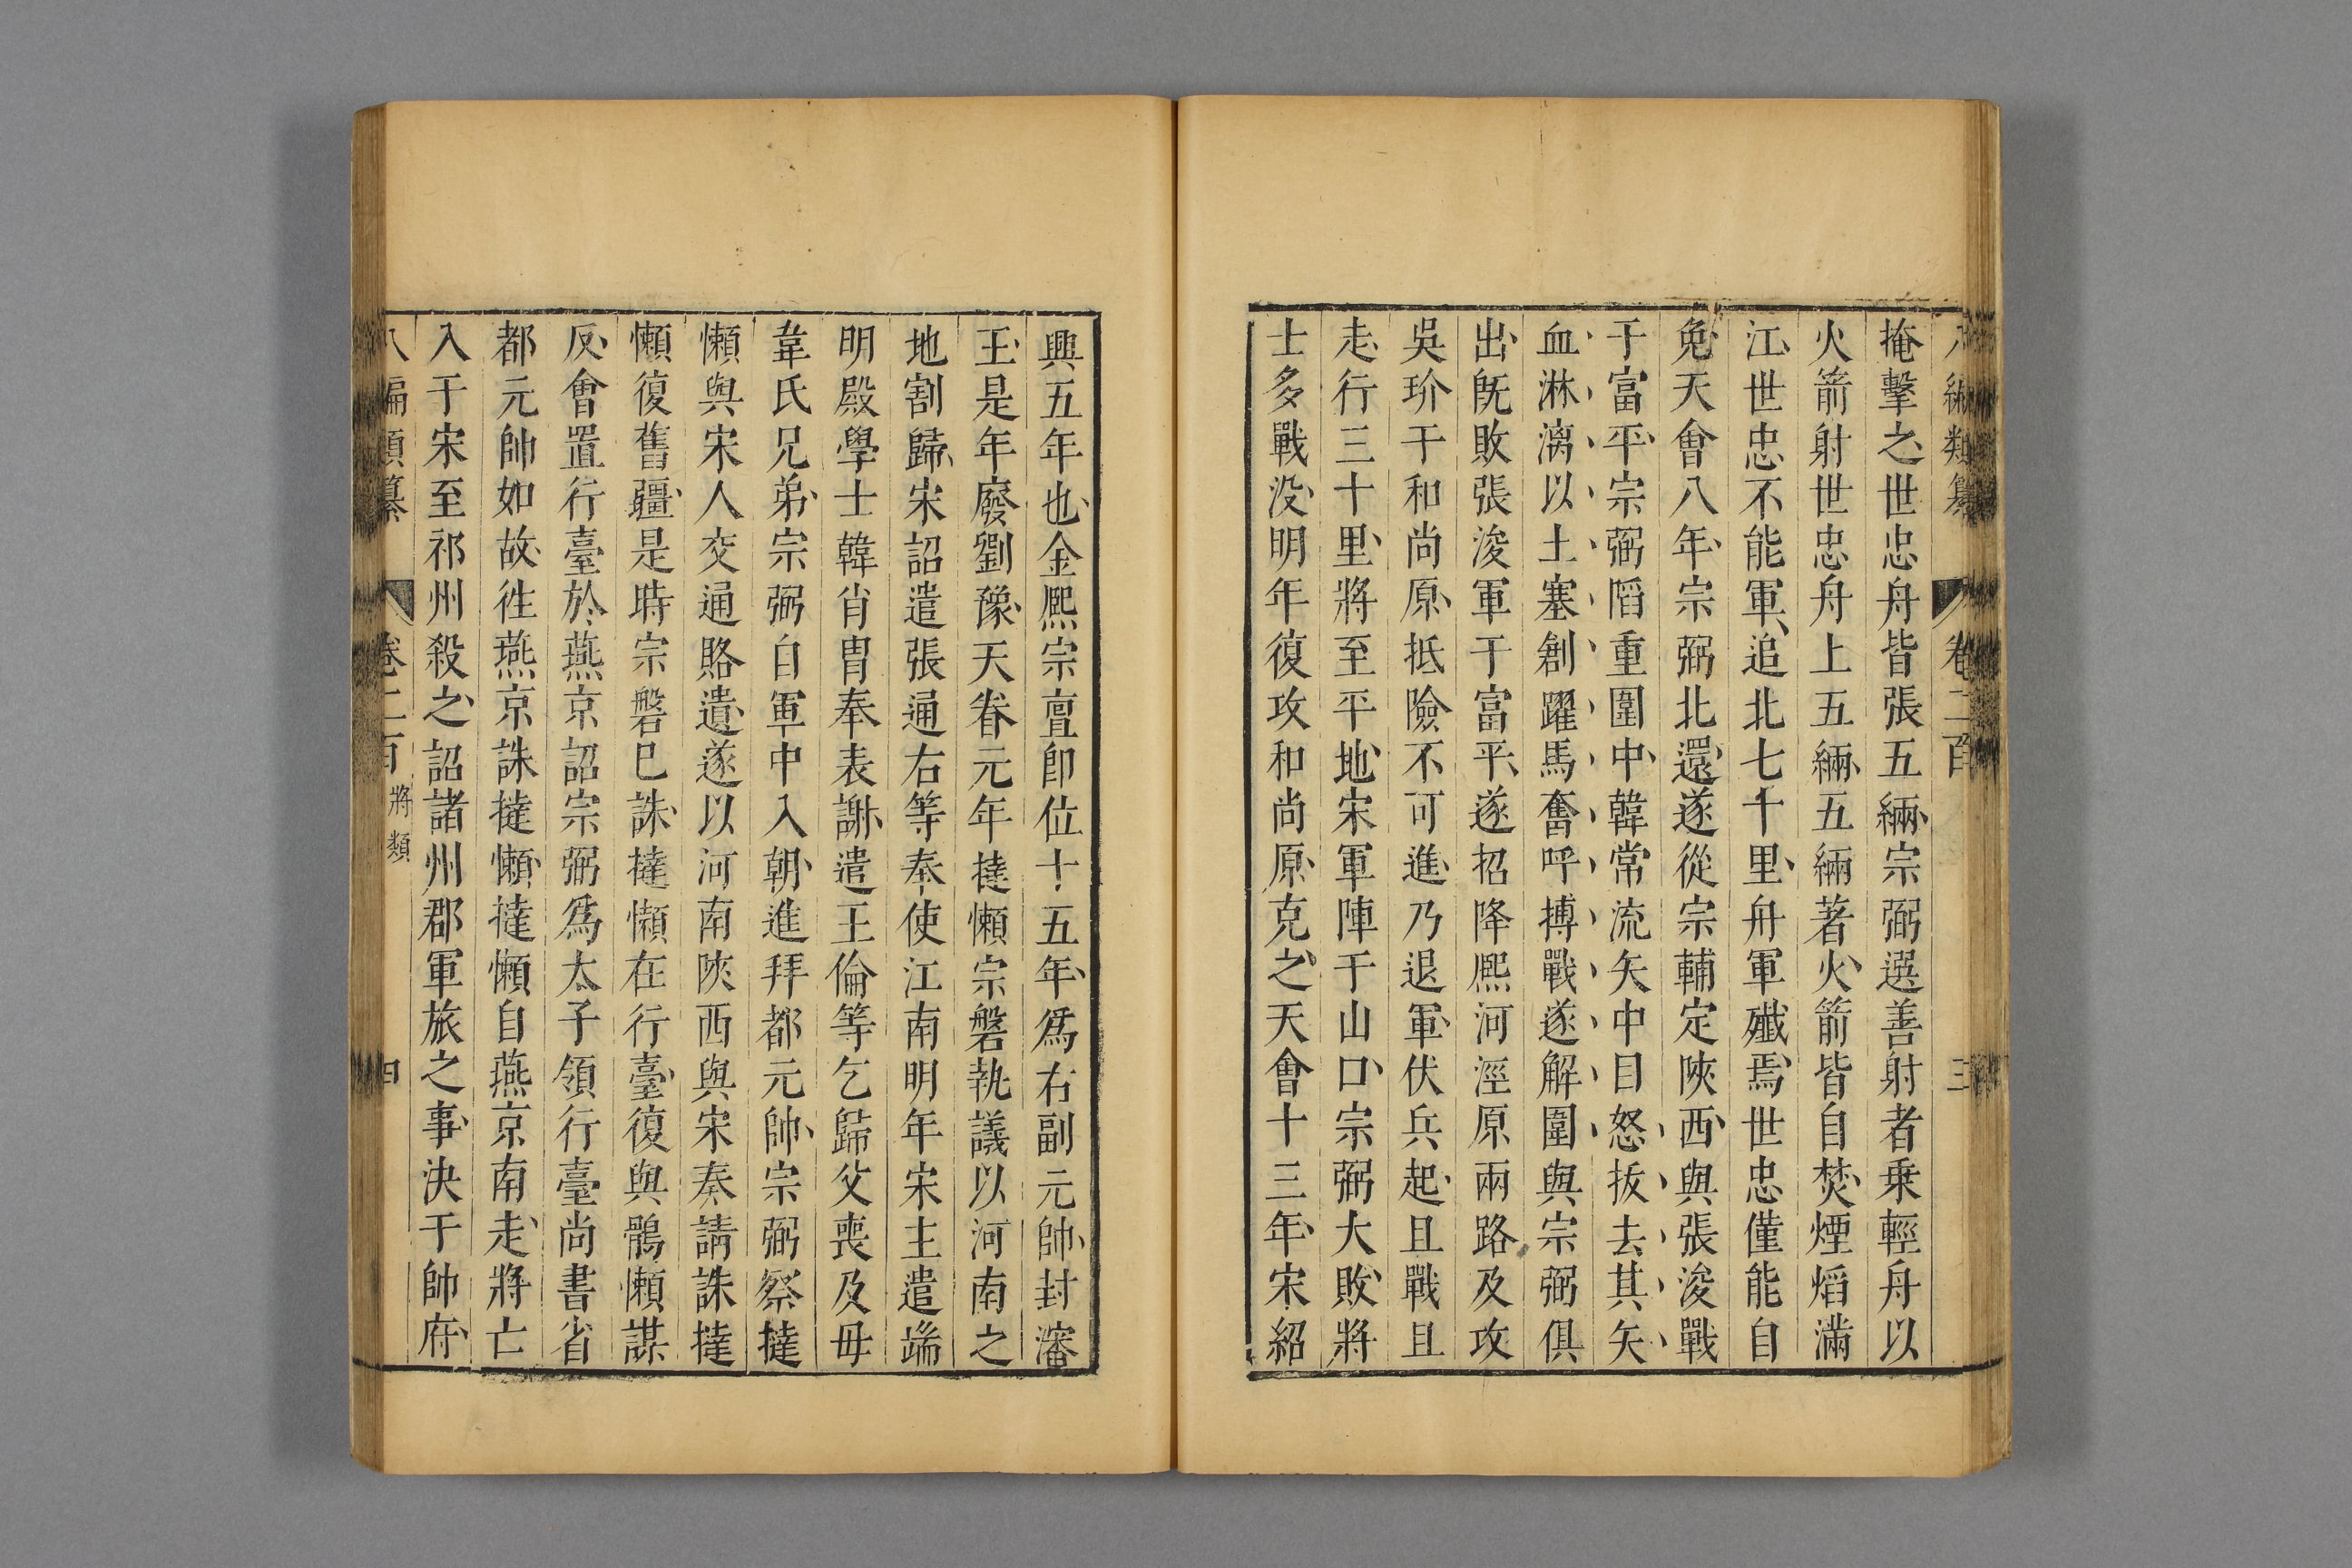 八編類纂 卷二百 三
掩擊之世忠舟皆張五緉宗弼選善射者乗輕舟以
火箭射世忠舟上五緉五緉著火箭皆自焚煙焰滿
江世忠不能軍追北七十里舟軍殱焉世忠僅能自
免天會八年宗弼北還遂從宗輔定陜西與張浚戰
于富平宗弼䧟重圍中韓常流矢中目怒拔去其矢
血淋漓以土塞創躍馬奮呼搏戰遂解圍與宗弼俱
出旣敗張浚軍于富平遂招降熈河涇原兩路及攻
吳玠于和尚原抵險不可進乃退軍伏兵起且戰且
走行三十里將至平地宋軍陣于山口宗弼大敗將
士多戰没明年復攻和尚原克之天會十三年宋紹
興五年也金熈宗亶卽位十五年爲右副元帥封瀋
王是年廢劉豫天眷元年撻懶宗磐執議以河南之
地割歸宋詔遣張通右等奉使江南明年宋主遣端
明殿學士韓肖胄奉表謝遣王倫等乞歸父喪及毋
韋氏兄弟宗弼自軍中入朝進拜都元帥宗弼察撻
懶與宋人交通賂遺遂以河南陜西與宋奏請誅撻
懶復舊疆是時宗磐巳誅撻懶在行臺復與鶻懶謀
反會置行臺於燕京詔宗弼爲太子領行臺尚書省
都元帥如故徃燕京誅撻懶撻懶自燕京南走將亡
入于宋至祁州殺之詔諸州郡軍旅之事決于帥府
八編類纂 卷二百 將類 四